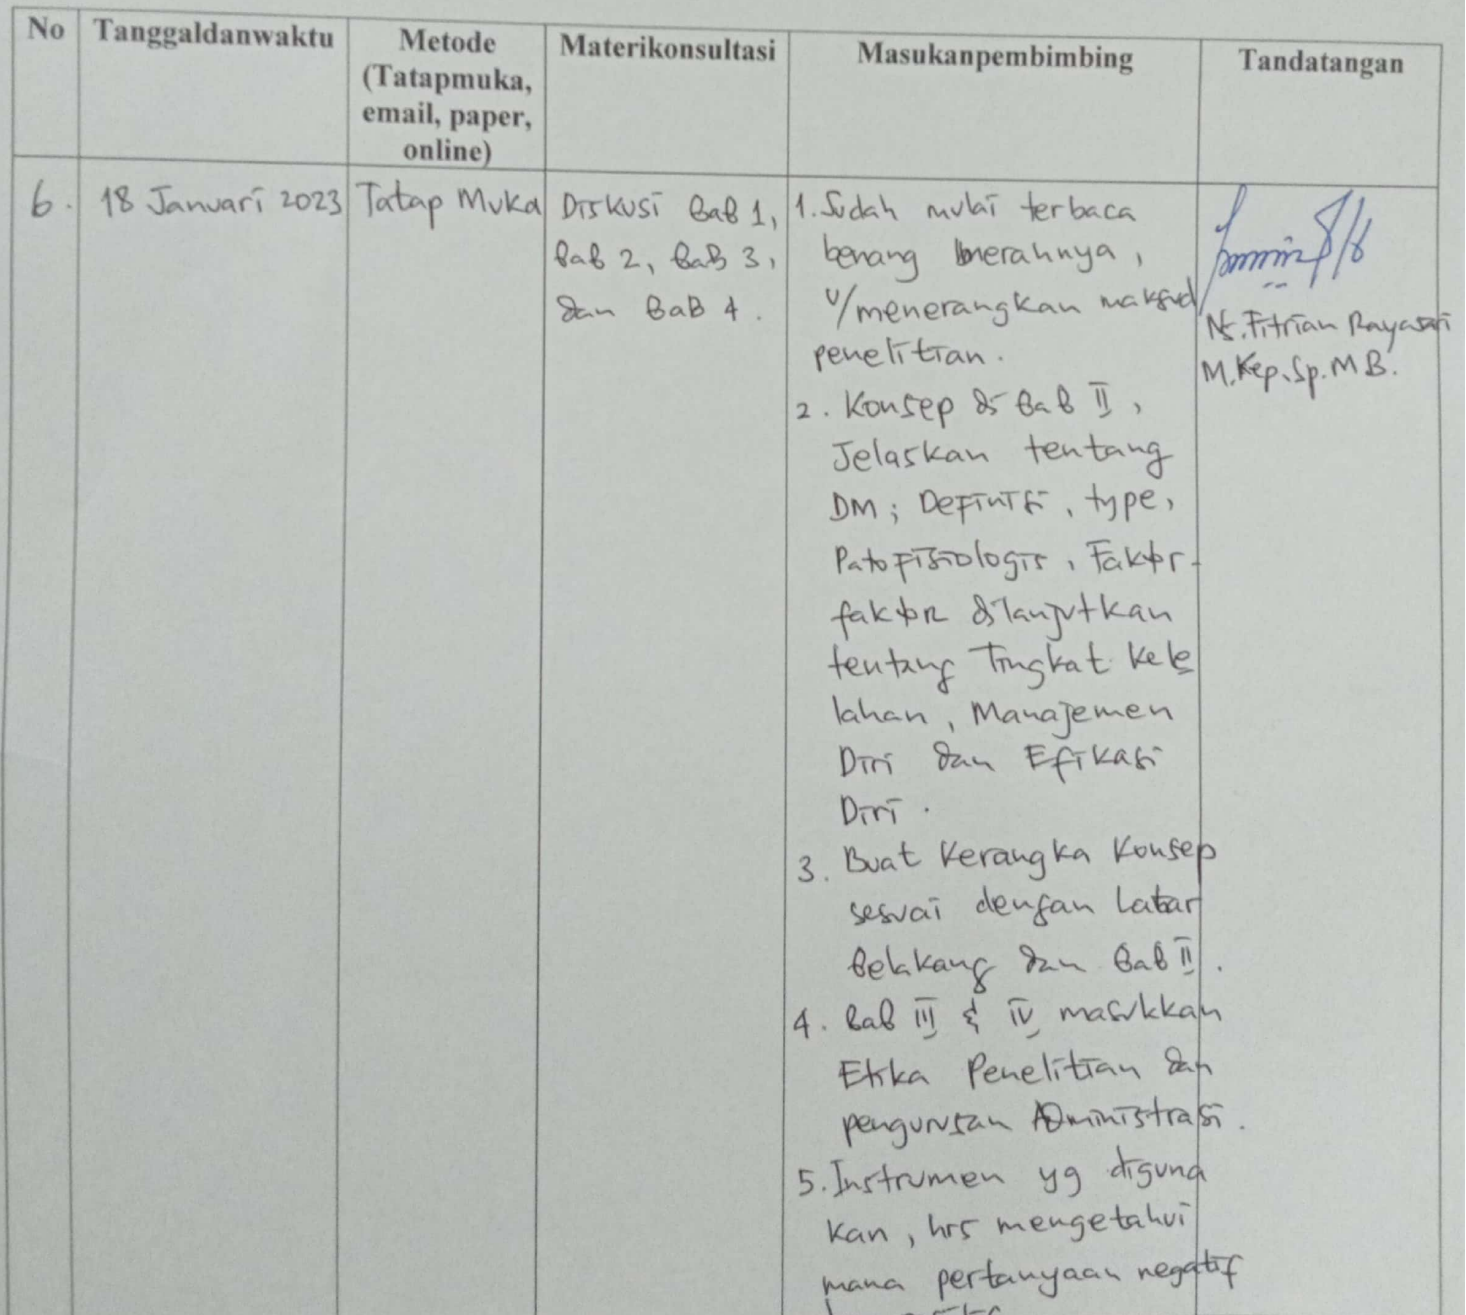 No
Tanggaldanwaktu
Metode
(Tatapmuka,
email, paper,
online)
Materikonsultasi
Masukanpembimbing
Tandatangan
6.
18 Januari 2023
Tatap Muka
Diskusi Bab 1,
Bab 2, Bab 3,
dan Bab 4.
1. Sudah mulai terbaca
benang merahnya,
u/menerangkan maksud
penelitian.
2. Konsep di Bab II,
Jelaskan tentang
DM; Definisi, type,
Patofisiologis, Faktor-
faktor dilanjutkan
tentang Tingkat kele
lahan, Manajemen
Diri dan Efikasi
Diri.
3. Buat Kerangka Konsep
sesuai dengan Latar
Belakang dan Bab II.
4. Bab III & IV masukkan
Etika Penelitian dan
pengurusan Administrasi.
5. Instrumen yg diguna
kan, hrs mengetahui
mana pertanyaan negatif
Ns. Fitrian Rayasari
M.Kep.Sp.MB.